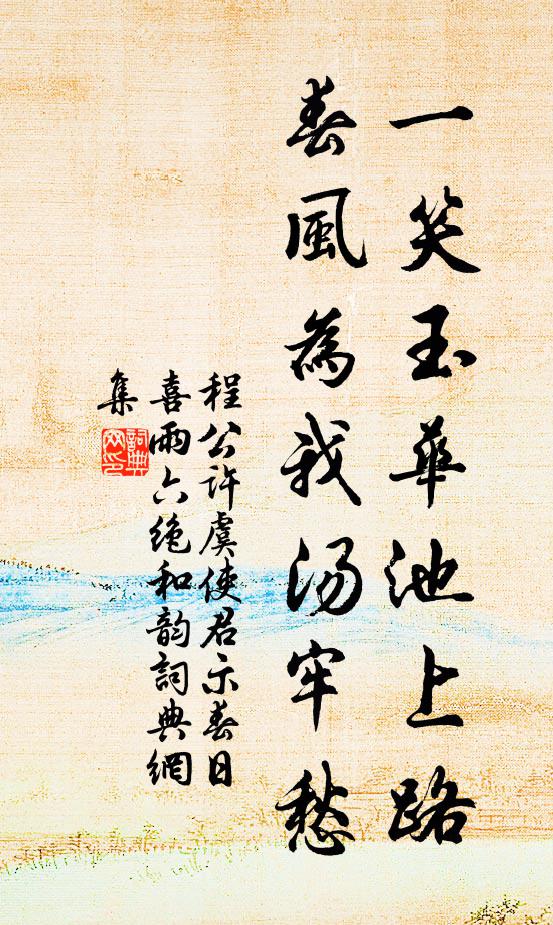 一笑玉華池上路
春風為我湯牢愁
程公許虞使君示春日
喜雨六絶和韵詞典網
集
詞典
网印